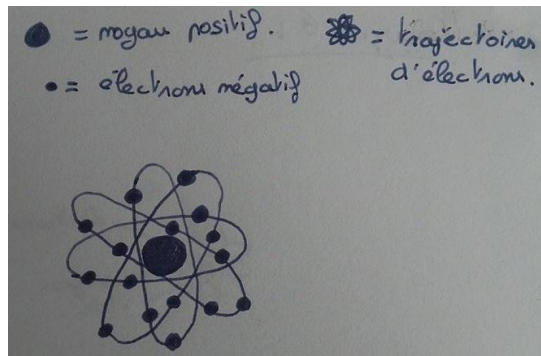 = noyau positif.
= trajectoires
d'électrons.
= électrons négatif